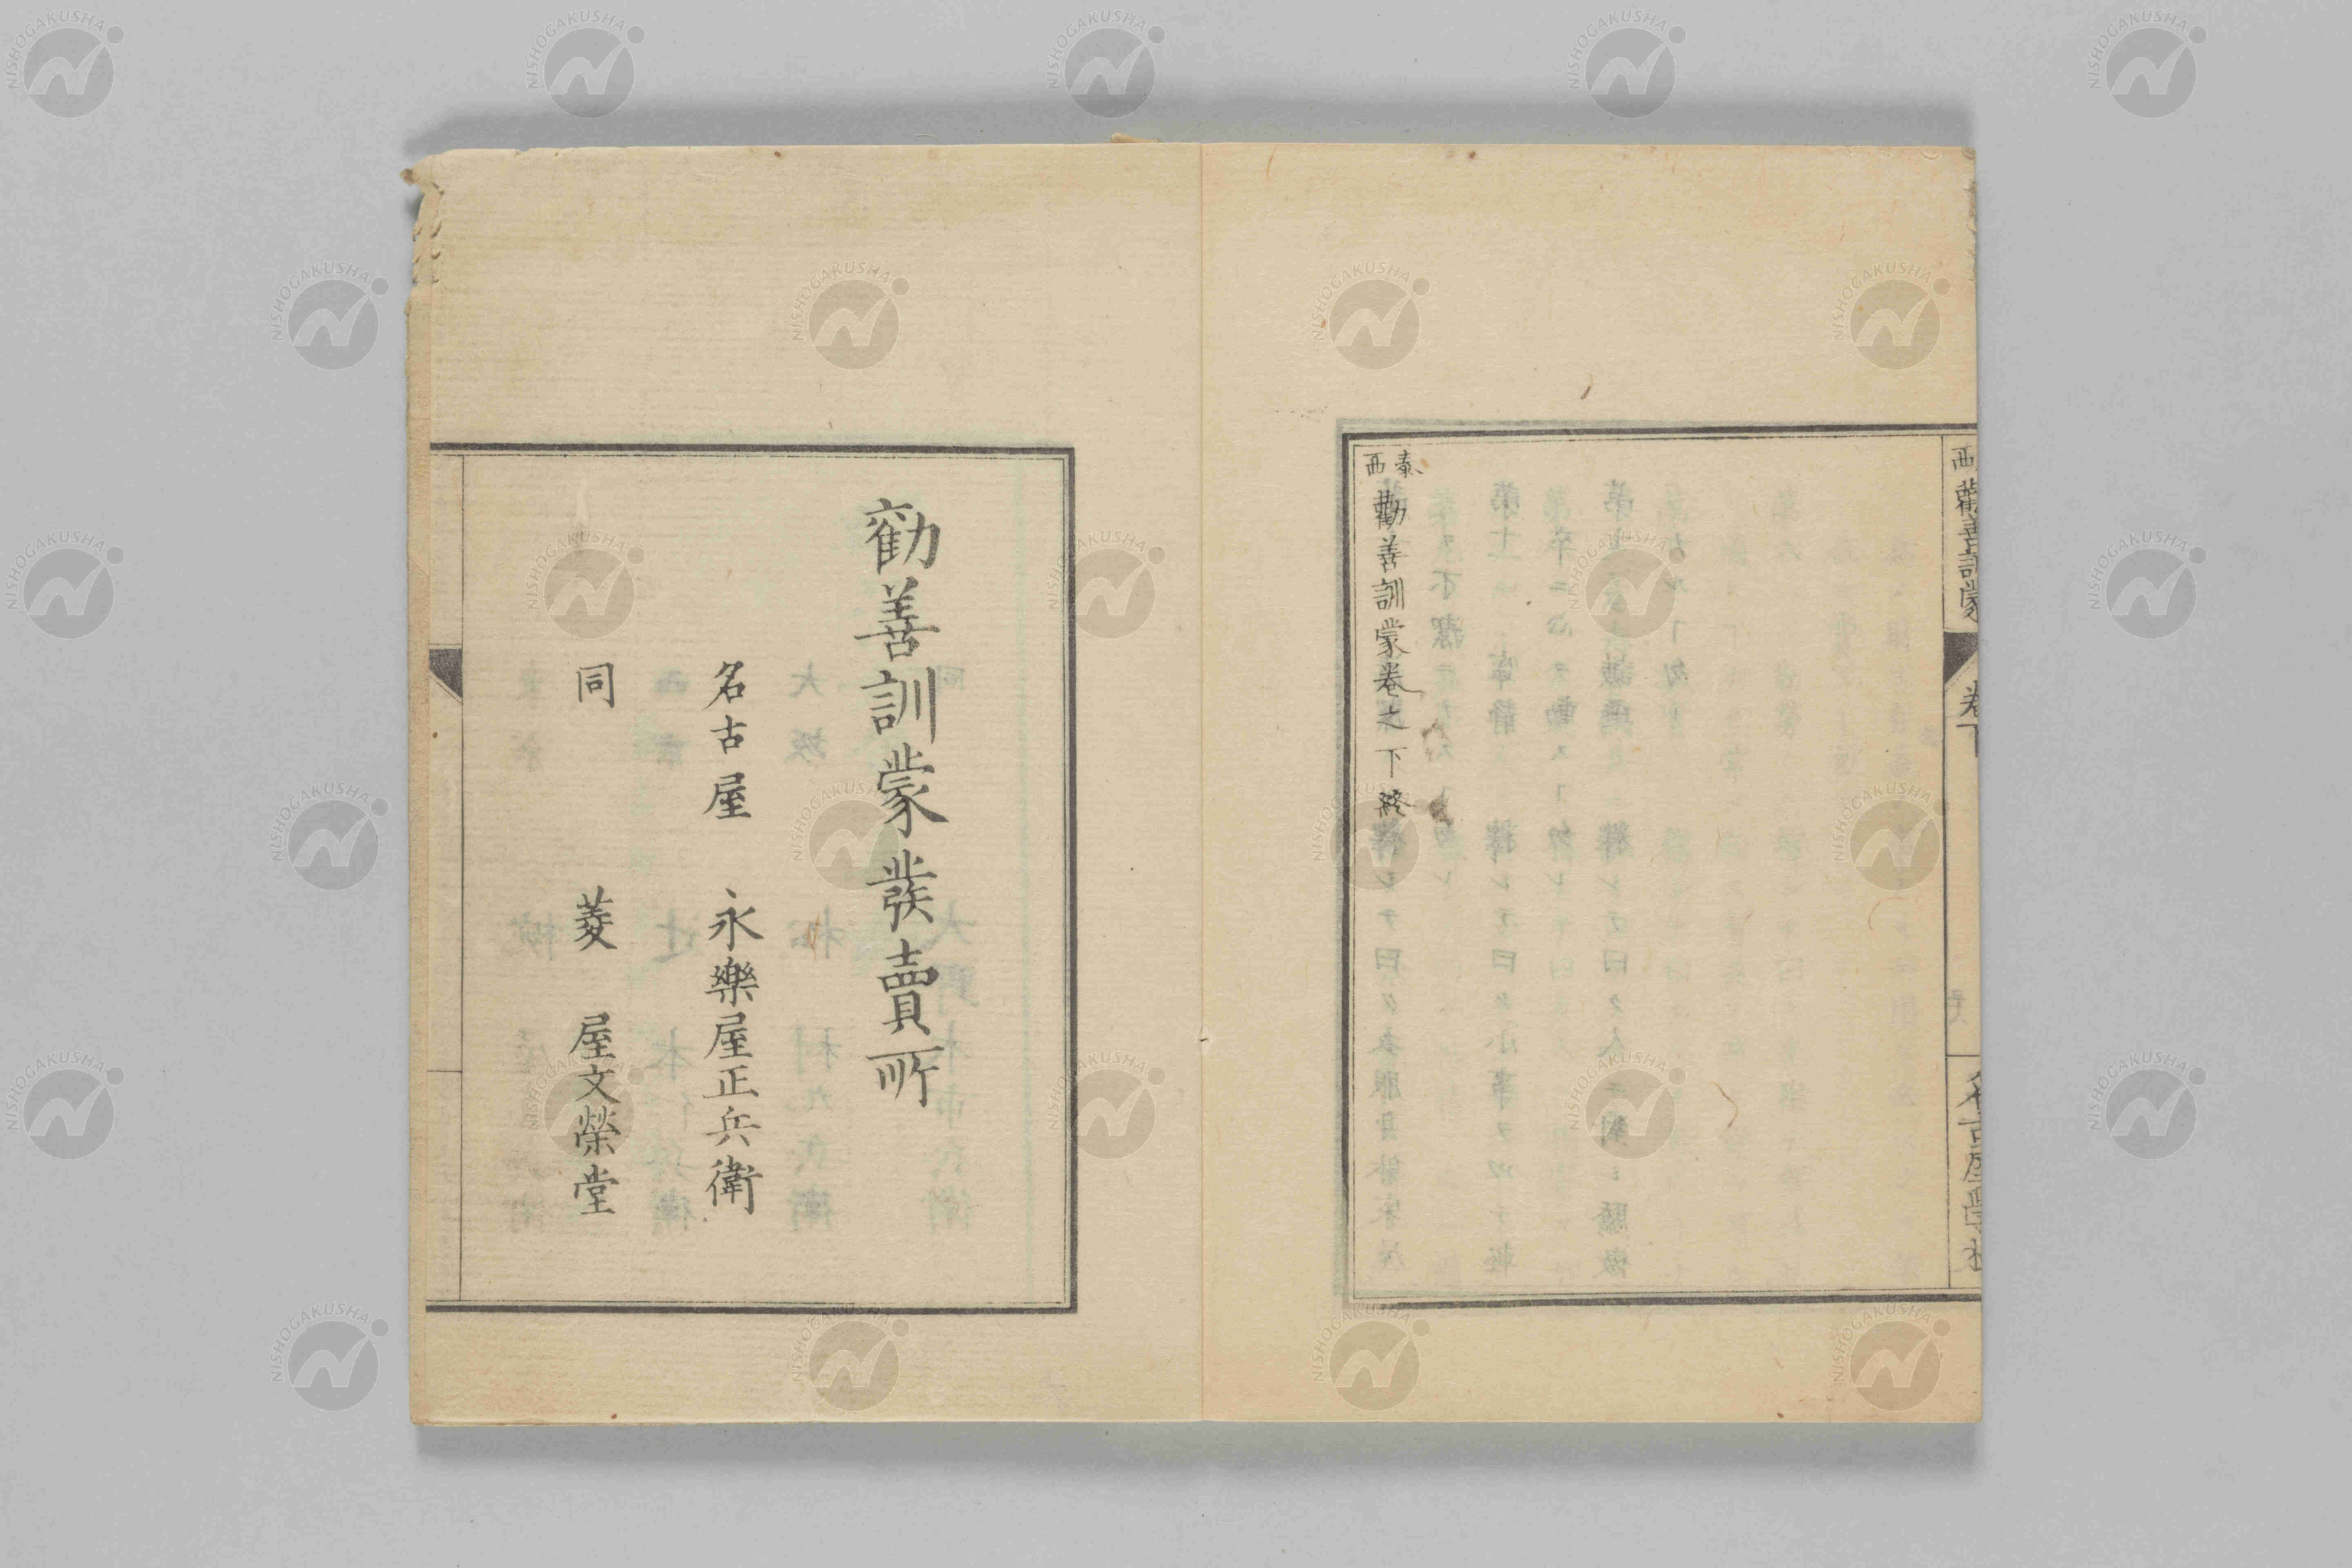 西勸善訓蒙
卷下
名古屋學校
泰西勸善訓蒙卷之下終
勧善訓蒙發賣所
名古屋 永樂屋正兵衛
同 菱屋文榮堂
NISHOGAKUSHA